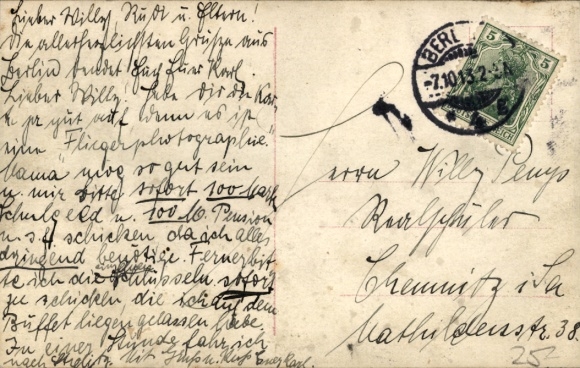 Lieber Willy, Rudi u. Eltern!
Die allerherzlichsten Grüsse aus
Berlin sendet Euch Euer Karl.
Lieber Willy! Hebe Dir die Kar
te ja gut auf denn es ist
eine „Fliegerphotographie."
Mama mög so gut sein
u. mir bitte sofort 100 Mark
Schulgeld u. 100 M. Pension
u.s.f. schicken da ich alles
dringend benötige. Ferner bit
te ich die Schlüsseln sofort
zu schicken die ich auf dem
Büffet liegen gelassen habe.
In einer Stunde fahr ich
nach Mit Gruss u. Kuss Euer Karl.
BERLIN
-7.10.13.2-3N
5 5
Herrn Willy
Realschüler
Chemnitz i. Sa
Mathildenstr. 38.
25